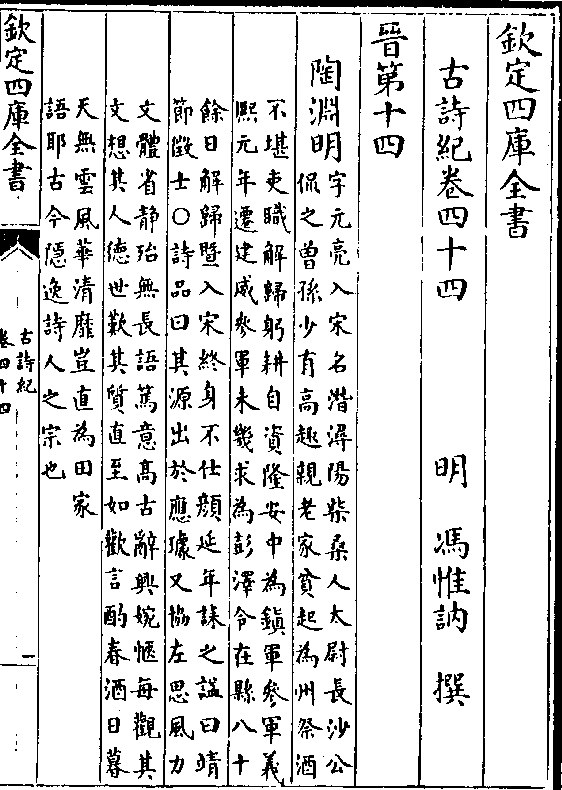 欽定四庫全書
古詩紀卷四十四 明 馮惟訥 撰
晉第十四
陶淵明
字元亮入宋名潛潯陽柴桑人太尉長沙公
侃之曾孫少有高趣親老家貧起為州祭酒
不堪吏職解歸躬耕自資隆安中為鎮軍參軍義
熙元年遷建威參軍未幾求為彭澤令在縣八十
餘日解歸暨入宋終身不仕顔延年誄之諡曰靖
節徵士〇詩品曰其源出於應璩又協左思風力
文體省静殆無長語篤意髙古辭興婉愜每觀其
文想其人德世歎其質直至如歡言酌春酒日暮
天無雲風華清靡豈直為田家
語耶古今隱逸詩人之宗也
欽定四庫全書
古詩紀
卷四十四
一